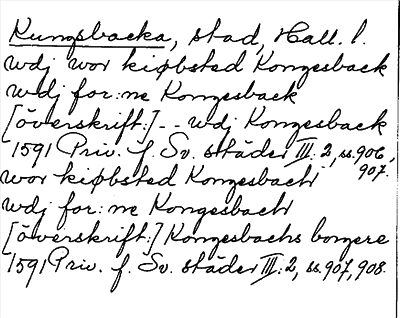 Kungsbacka, stad, Hall. l.
wdj wor kiøbsted Kongesback
wdj for:ne Kongesback
[överskrift:] - - wdj Kongesback
1591 Priv. f. Sv. städer III: 2, ss. 906, 907.
wor kiøbsted Kongesbach
wdj for:ne Kongesbach
[överskrift:] Kongesbachs borgere
1591 Priv. f. Sv. städer III: 2, ss. 907, 908.